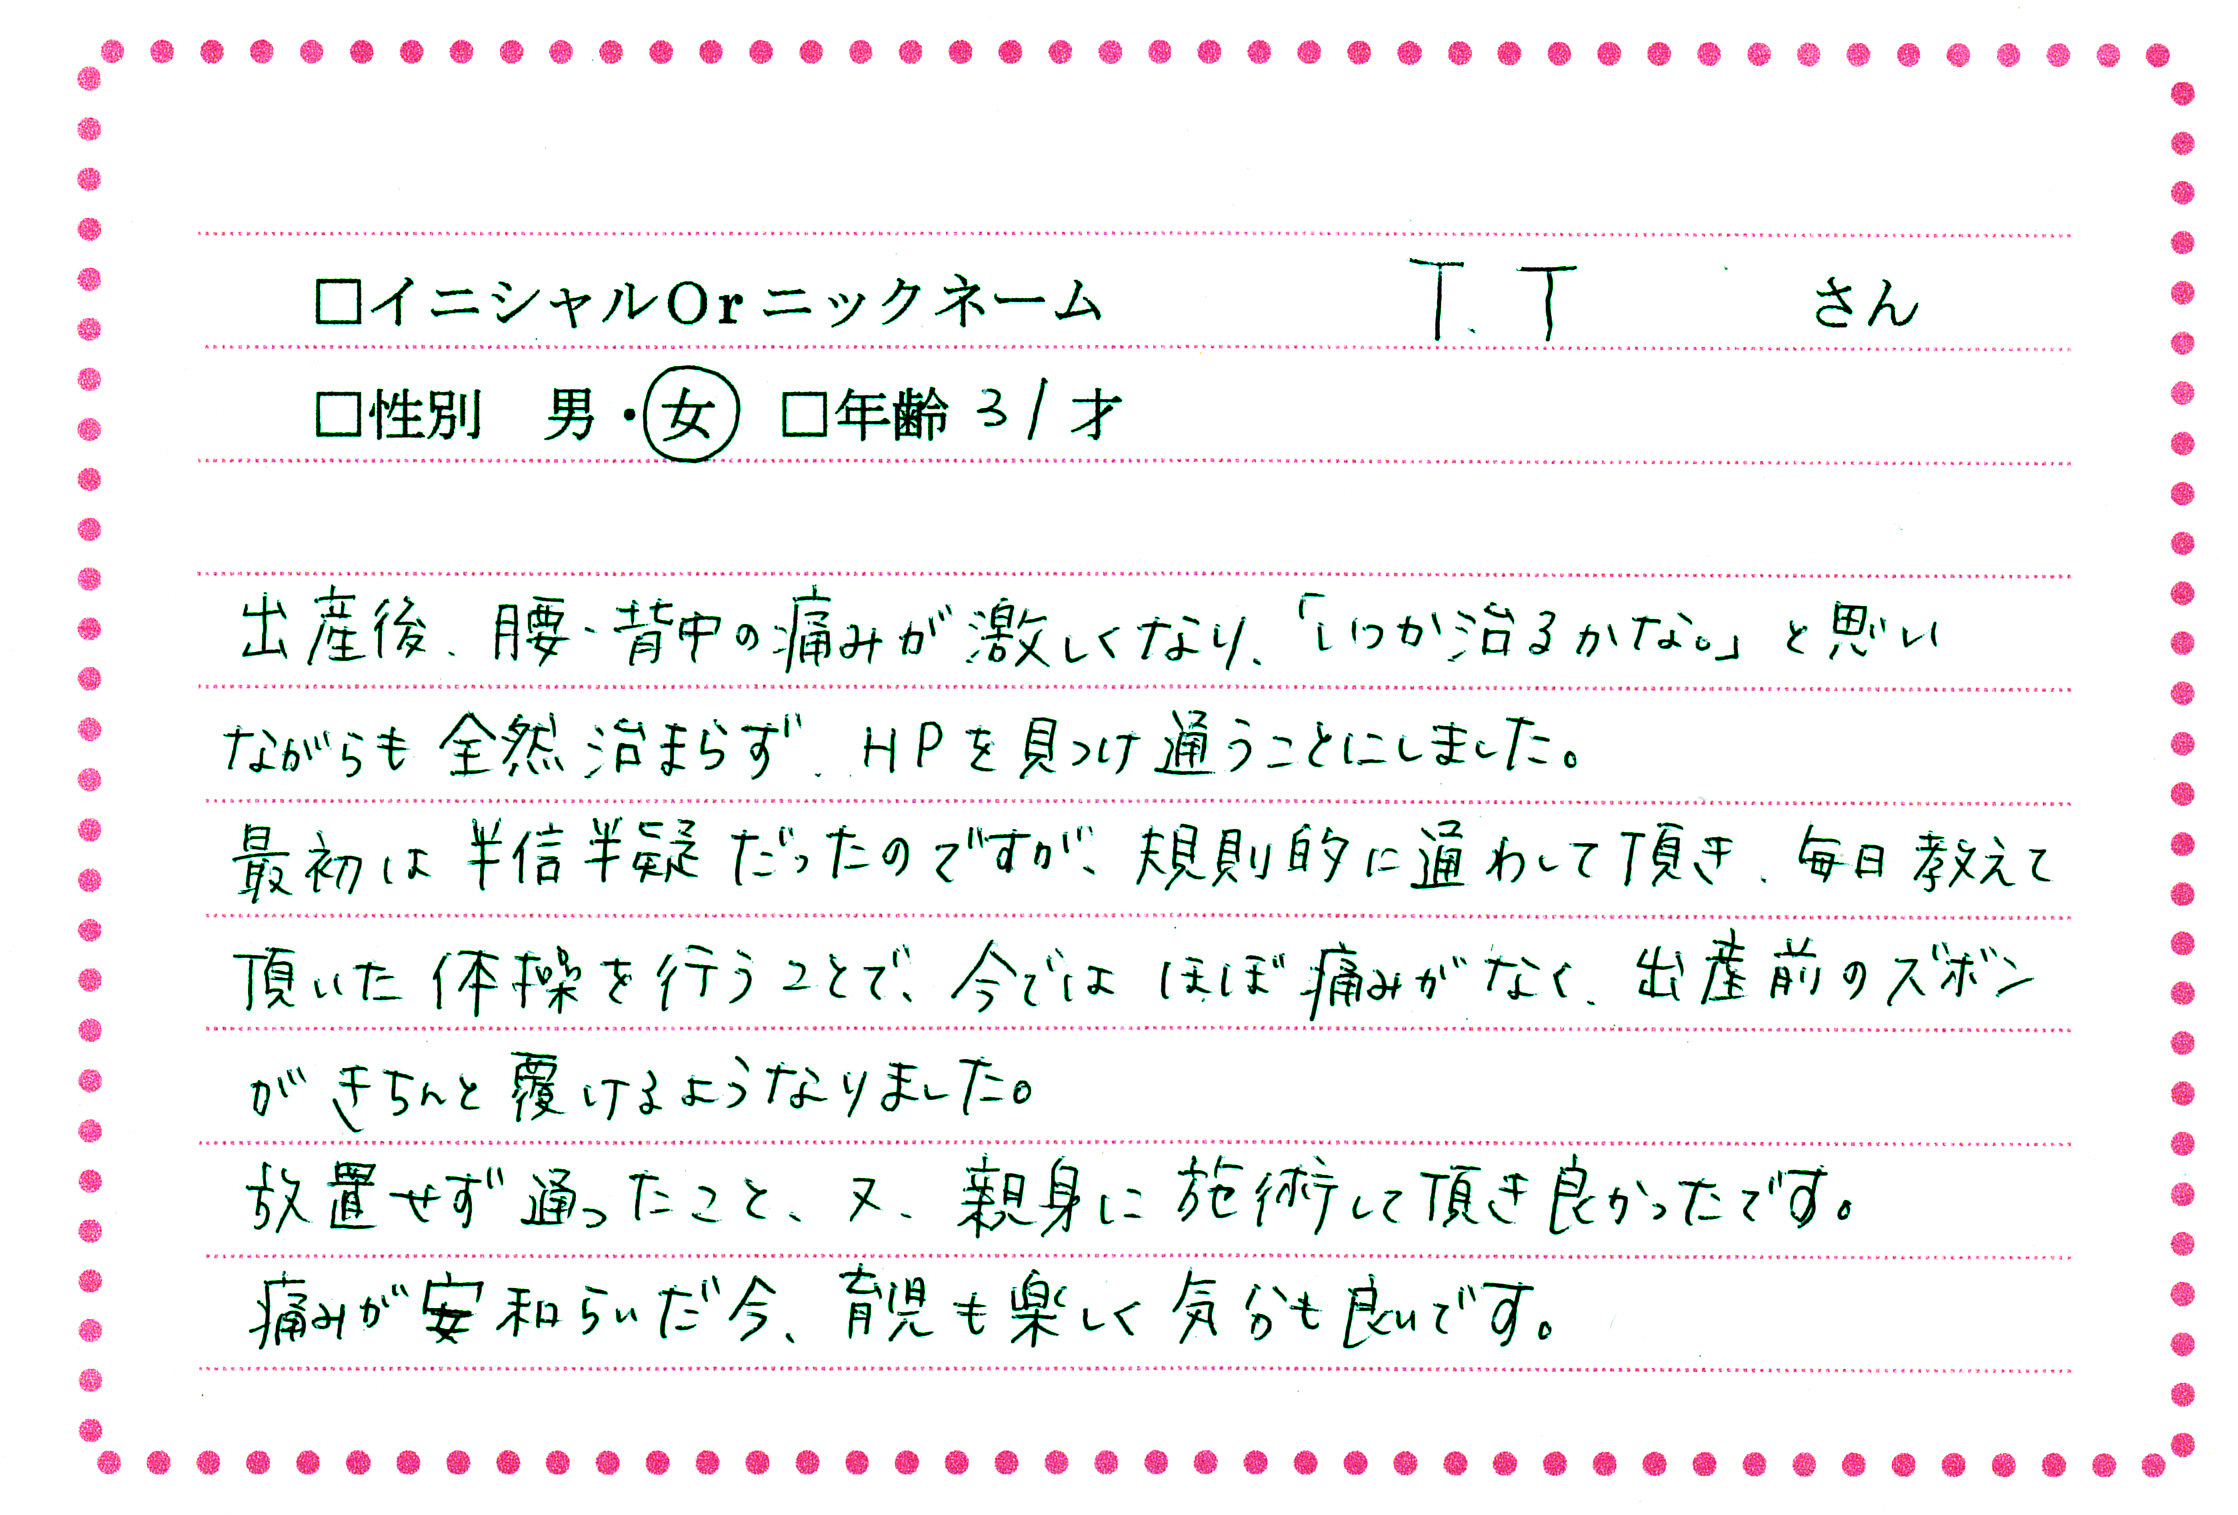 □イニシャルOrニックネーム T.T さん
□性別 男・女 □年齢 31才
出産後、腰・背中の痛みが激しくなり、「いつか治るかな。」と思い
ながらも全然治まらず、HPを見つけ通うことにしました。
最初は半信半疑だったのですが、規則的に通わして頂き、毎日教えて
頂いた体操を行うことで、今ではほぼ痛みがなく、出産前のズボン
がきちんと覆けるようなりました。
放置せず通ったこと、又、親身に施術して頂き良かったです。
痛みが安和らいだ今、育児も楽しく気分も良いです。